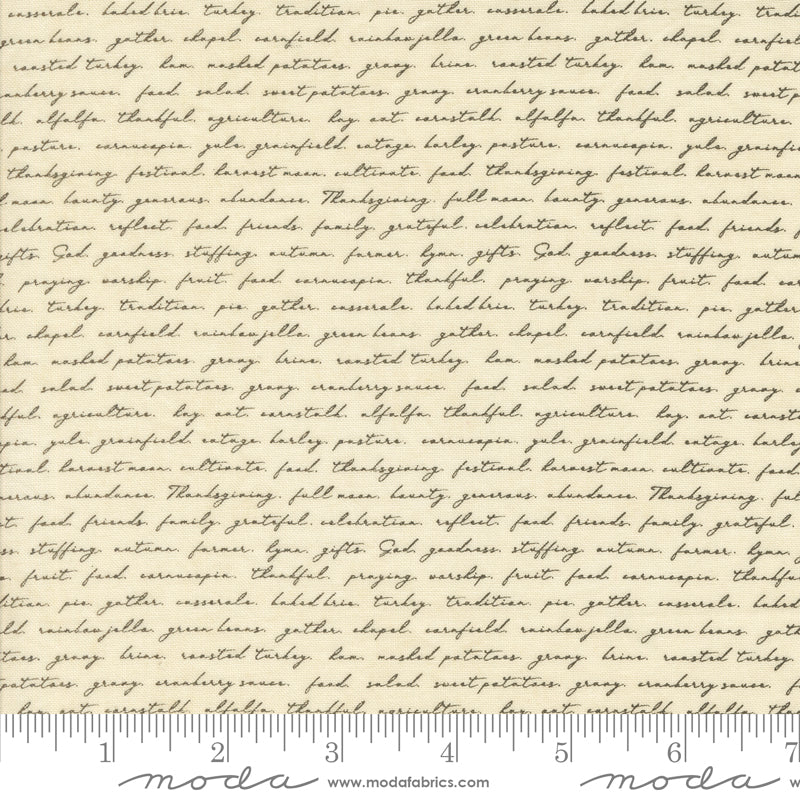 casserole. baked brie. turkey. tradition. pie. gather. casserole. baked brie. turkey.
green beans. gather. chapel. cornfield. rainbow jello. green beans. gather. chapel.
roasted turkey. ham. mashed potatoes. gravy. brine. roasted turkey. ham. mashed
cranberry sauce. food. salad. sweet potatoes. gravy. cranberry sauce. food. salad. sweet
alfalfa. thankful. agriculture. hay. oat. cornstalk. alfalfa. thankful. agriculture.
pasture. cornucopia. yule. grainfield. cotage. barley. pasture. cornucopia. yule.
thanksgiving. festival. harvest moon. cultivate. food. thanksgiving. festival. harvest moon
moon. bounty. generous. abundance. Thanksgiving. full moon. bounty. generous. abundance.
celebration. reflect. food. friends. family. grateful. celebration. reflect. food. friends.
gifts. God. goodness. stuffing. autumn. farmer. hymn. gifts. God. goodness. stuffing.
praying. worship. fruit. food. cornucopia. thankful. praying. worship. fruit. food.
brie. turkey. tradition. pie. gather. casserole. baked brie. turkey. tradition. pie. gather
chapel. cornfield. rainbow jello. green beans. gather. chapel. cornfield. rainbow jello.
ham. mashed potatoes. gravy. brine. roasted turkey. ham. mashed potatoes. gravy. brine
salad. sweet potatoes. gravy. cranberry sauce. food. salad. sweet potatoes. gravy.
agriculture. hay. oat. cornstalk. alfalfa. thankful. agriculture. hay. oat.
yule. grainfield. cotage. barley. pasture. cornucopia. yule. grainfield. cotage.
harvest moon. cultivate. food. thanksgiving. festival. harvest moon. cultivate. food.
abundance. Thanksgiving. full moon. bounty. generous. abundance. Thanksgiving.
food. friends. family. grateful. celebration. reflect. food. friends. family. grateful.
stuffing. autumn. farmer. hymn. gifts. God. goodness. stuffing. autumn. farmer. hymn.
fruit. food. cornucopia. thankful. praying. worship. fruit. food. cornucopia. thankful
pie. gather. casserole. baked brie. turkey. tradition. pie. gather. casserole. baked
rainbow jello. green beans. gather. chapel. cornfield. rainbow jello. green beans.
gravy. brine. roasted turkey. ham. mashed potatoes. gravy. brine. roasted turkey.
potatoes. gravy. cranberry sauce. food. salad. sweet potatoes. gravy. cranberry sauce.
hay. oat. cornstalk. alfalfa. thankful. agriculture. hay. oat. cornstalk. alfalfa.
1 2 3 4 5 6 7
moda www.modafabrics.com moda